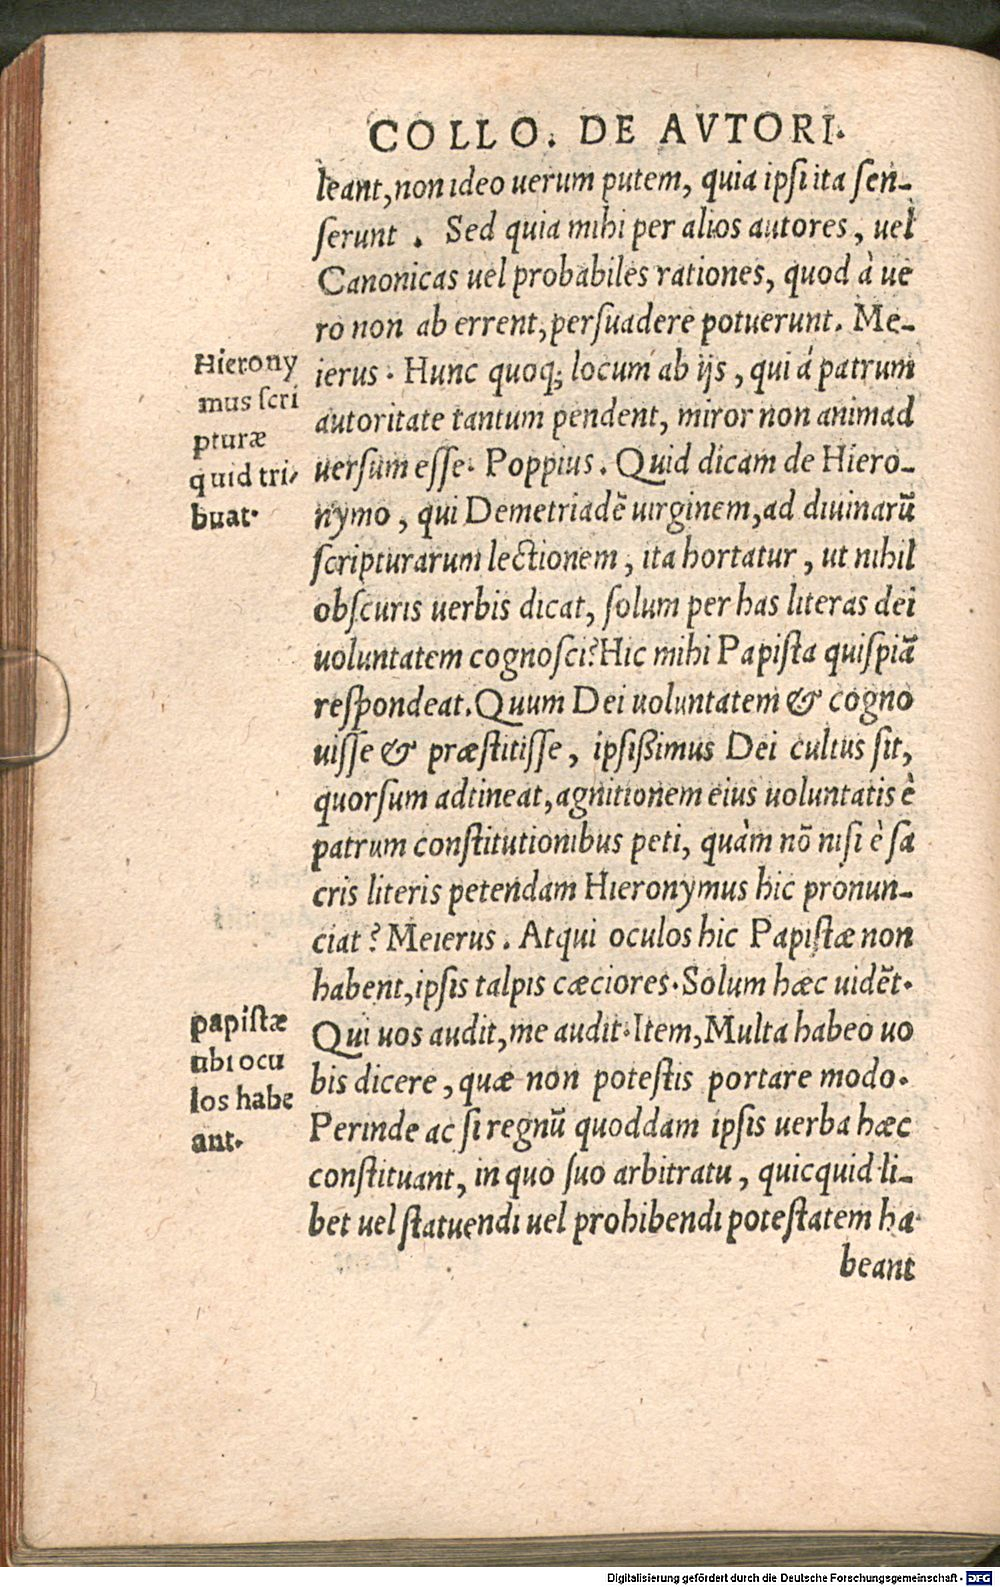 COLLO. DE AVTORI.
leant, non ideo uerum putem, quia ipsi ita sen-
serunt . Sed quia mihi per alios autores, uel
Canonicas uel probabiles rationes, quod à ue
ro non ab errent, persuadere potuerunt. Me-
ierus. Hunc quoq; locum ab ijs, qui á patrum
autoritate tantum pendent, miror non animad
uersum esse. Poppius. Quid dicam de Hiero-
nymo, qui Demetriadẽ uirginem, ad diuinarũ
scripturarum lectionem, ita hortatur, ut nihil
obscuris uerbis dicat, solum per has literas dei
uoluntatem cognosci? Hic mihi Papista quispiã
respondeat. Quum Dei uoluntatem & cogno
uisse & præstitisse, ipsißimus Dei cultus sit,
quorsum adtineat, agnitionem eius uoluntatis è
patrum constitutionibus peti, quàm nõ nisi è sa
cris literis petendam Hieronymus hic pronun-
ciat? Meierus. Atqui oculos hic Papistæ non
habent, ipsis talpis cæciores. Solum hæc uidẽt.
Qui uos audit, me audit. Item, Multa habeo uo
bis dicere, quæ non potestis portare modo.
Perinde ac si regnũ quoddam ipsis uerba hæc
constituant, in quo suo arbitratu, quicquid li-
bet uel statuendi uel prohibendi potestatem ha
beant
Hierony
mus scri
pturæ
quid tri-
buat.
papistæ
ubi ocu
los habe
ant.
Digitalisierung gefördert durch die Deutsche Forschungsgemeinschaft - DFG